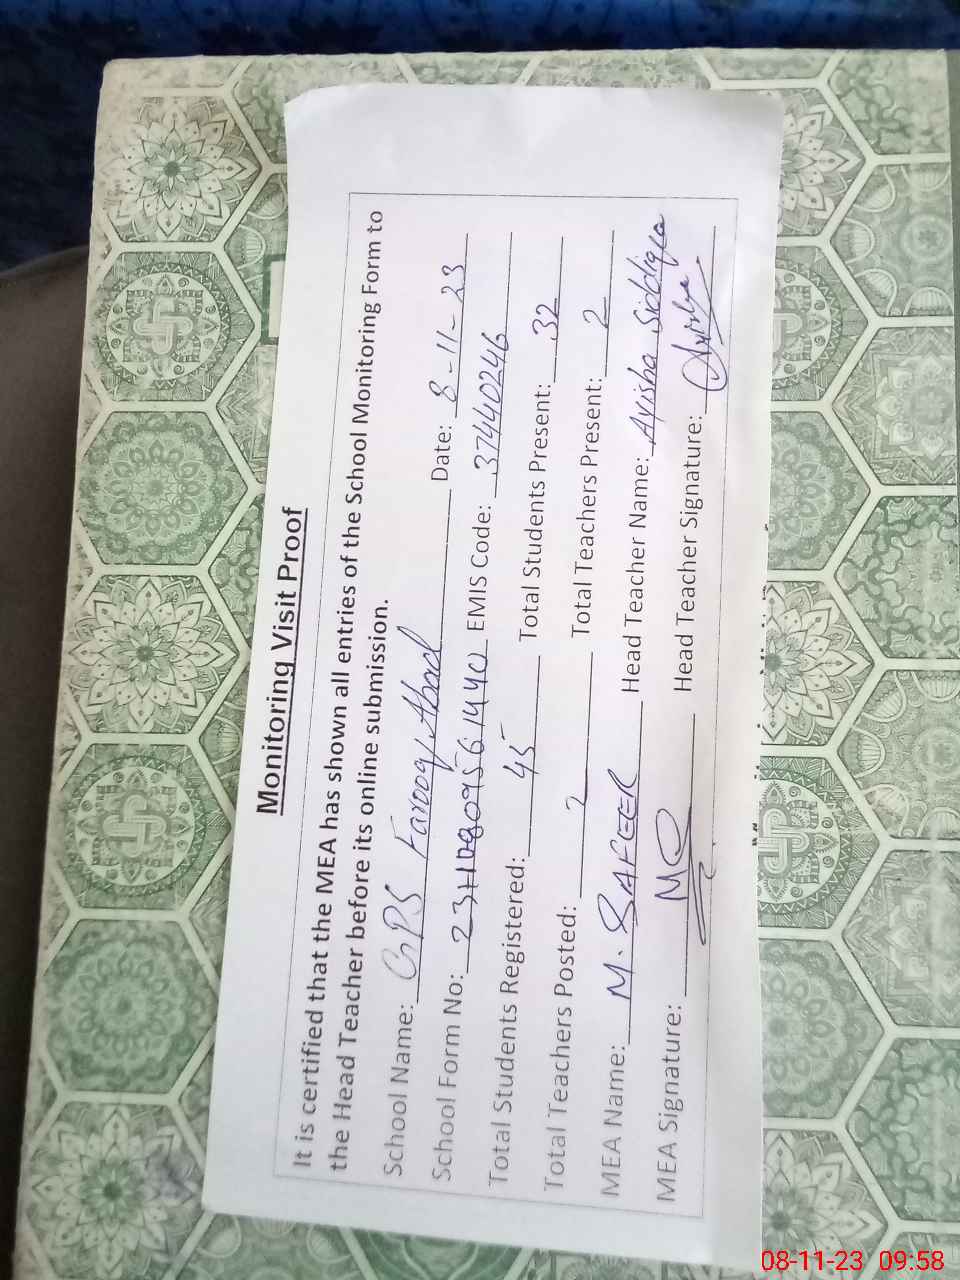 Monitoring Visit Proof
It is certified that the MEA has shown all entries of the School Monitoring Form to
the Head Teacher before its online submission.
School Name: GPS Farooq Abad Date: 8-11-23
School Form No: EMIS Code: 37440246
Total Students Registered: 45 Total Students Present: 32
Total Teachers Posted: 2 Total Teachers Present: 2
MEA Name: M. SAFEER Head Teacher Name: Ayisha Siddiqa
MEA Signature: Head Teacher Signature:
08-11-23 09:58